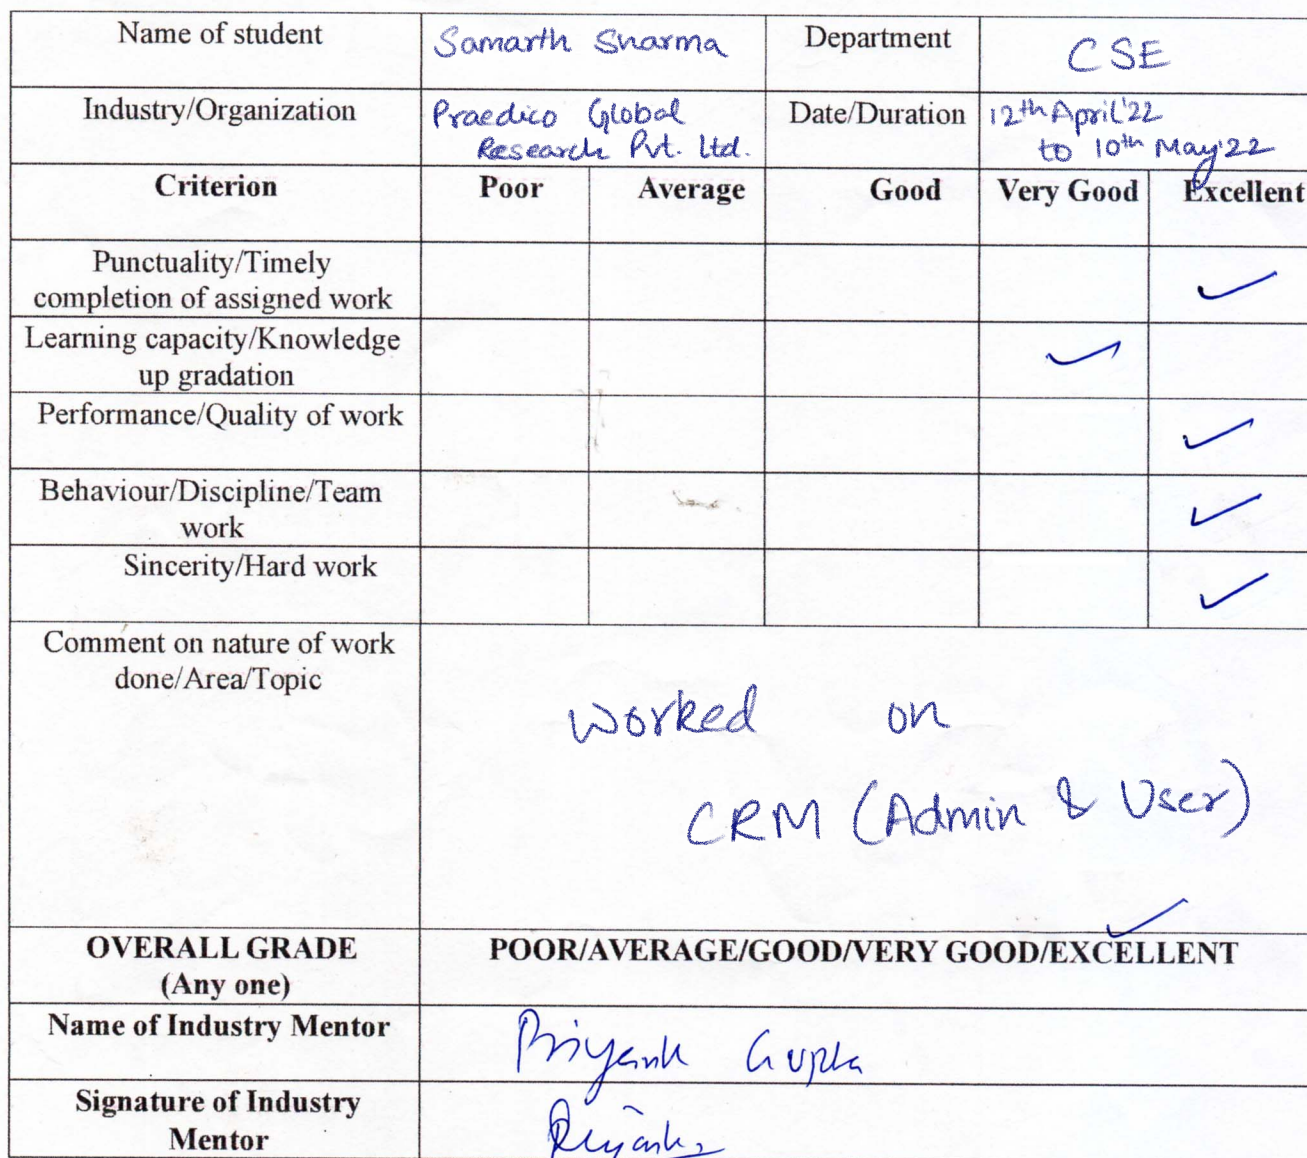 Name of student Samarth Sharma Department CSE
Industry/Organization Praedico Global Date/Duration 12th April'22
Research Pvt. Ltd. to 10th May'22
Criterion Poor Average Good Very Good Excellent
Punctuality/Timely
completion of assigned work ✓
Learning capacity/Knowledge
up gradation ✓
Performance/Quality of work ✓
Behaviour/Discipline/Team
work ✓
Sincerity/Hard work ✓
Comment on nature of work
done/Area/Topic
Worked on
CRM (Admin & User)
✓
OVERALL GRADE POOR/AVERAGE/GOOD/VERY GOOD/EXCELLENT
(Any one)
Name of Industry Mentor Priyank Gupta
Signature of Industry
Mentor